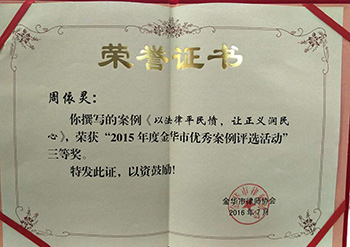 荣誉证书
周俍灵：
你撰写的案例《以法律平民愤，让正义润民
心》，荣获“2015年度金华市优秀案例评选活动”
三等奖。
特发此证，以资鼓励！
金华市律师协会
2016年7月